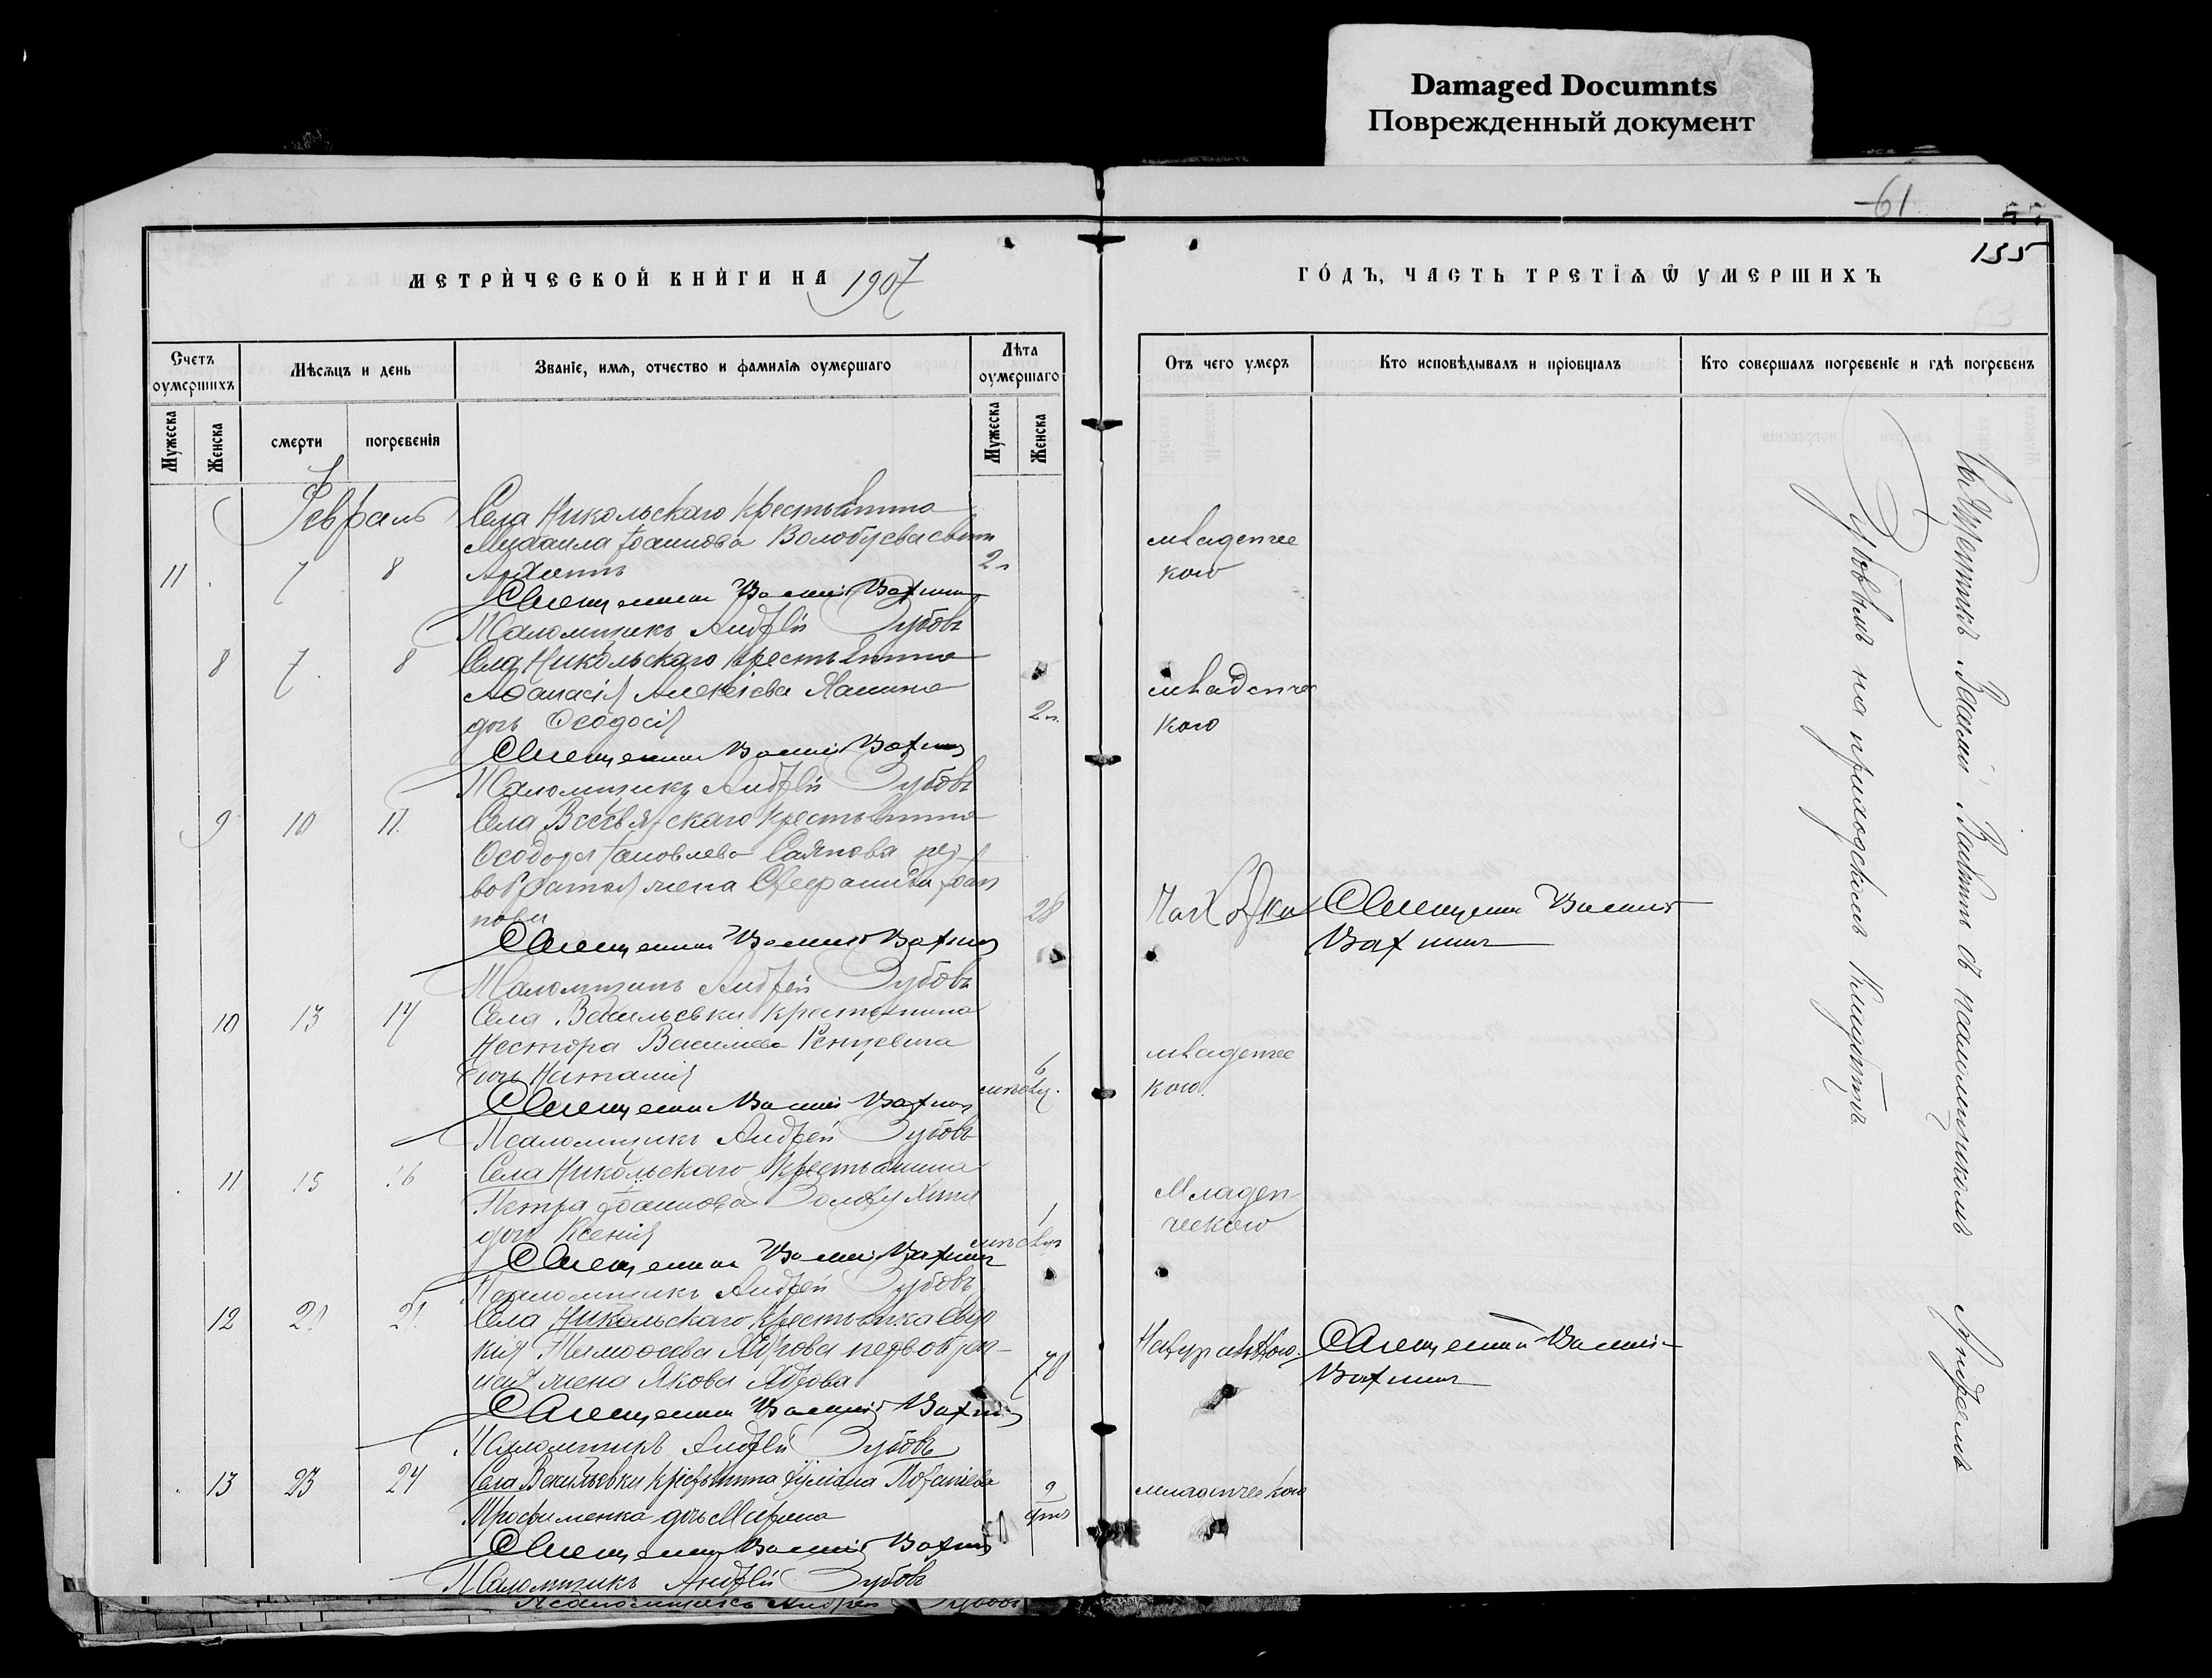 Damaged Documnts
Поврежденный документ
61
155
МЕТРИЧЕСКОЙ КНИГИ НА 1907
ГОДЪ, ЧАСТЬ ТРЕТІѦ Ѿ УМЕРШИХЪ
Счетъ оумершихъ
Мѣсѧцъ и день
Званіе, имѧ, отчество и фамиліѧ оумершаго
Лѣта оумершаго
Отъ чего умеръ
Кто исповѣдывалъ и пріобщалъ
Кто совершалъ погребеніе и гдѣ погребенъ
Мужеска
Женска
смерти
погребенія
Мужеска
Женска
Февраль
Села Никольскаго крестьянина
Михаила Іоаннова Волобуева сынъ
11 7 8
2
младенчес
каго
Священникъ Василій Вахнинъ
Псаломщикъ Андрей Зубовъ
8 7 8 Села Никольскаго крестьянина
Аѳанасія Алексіева
дочь Ѳеодосія
2
младенчес
каго
Священникъ Василій Вахнинъ
Псаломщикъ Андрей Зубовъ
9 10 11 Села крестьянина
Ѳеодора Іаковлева пер
вобрачная жена Іоан
нова
28
Священникъ Василій
Вахнинъ
Священникъ Василій Вахнинъ
Псаломщикъ Андрей Зубовъ
10 13 14 Села Васильевки крестьянина
Нестора Василіева
дочь Наталія
6
мѣсяц.
младенчес
каго
Священникъ Василій Вахнинъ
Псаломщикъ Андрей Зубовъ
11 15 16 Села Никольскаго крестьянина
Петра Іоаннова
дочь Ксенія
1
мѣсяц
Младен
ческаго
Священникъ Василій Вахнинъ
Псаломщикъ Андрей Зубовъ
12 20 21 Села Никольскаго крестьянка Евдо
кія Тимоѳеева Ядрова первобрач
ная жена Якова Ядрова
78
Натуральною
Священникъ Василій
Вахнинъ
Священникъ Василій Вахнинъ
Псаломщикъ Андрей Зубовъ
13 23 24 Села Васильевки крестьянина
Трофименка дочь Марина
9
дней
младенческаго
Священникъ Василій Вахнинъ
Псаломщикъ Андрей Зубовъ
Псаломщикъ Андрей Зубовъ
Священникъ Василій Вахнинъ съ псаломщикомъ Андреемъ
Зубовымъ на приходскомъ кладбищѣ.